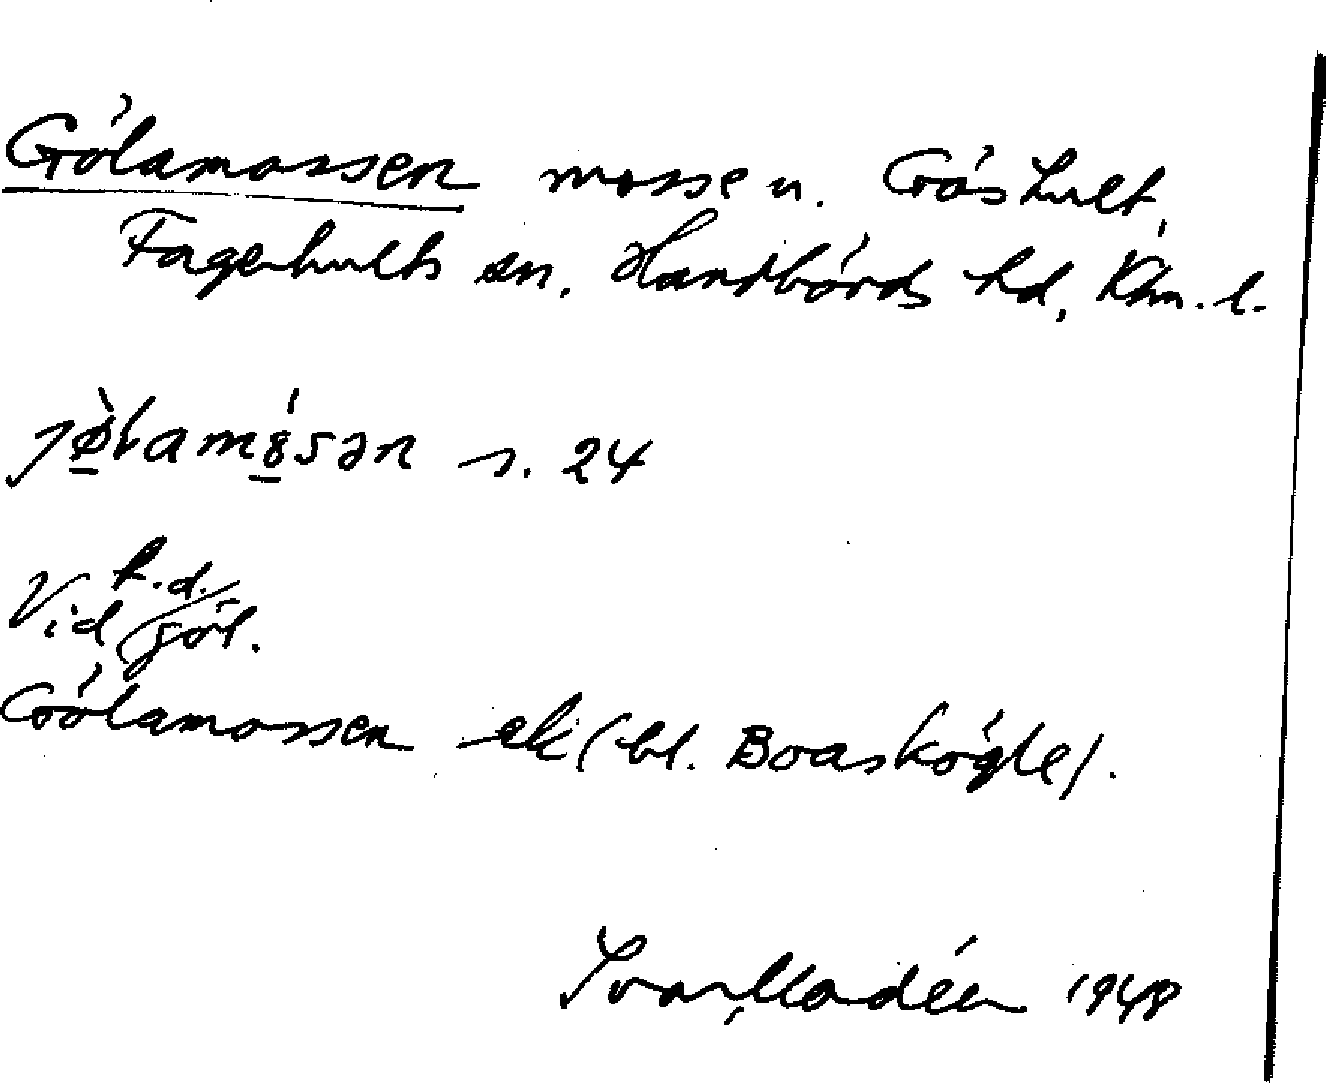 Gölamossen mosse u. Göshult,
Fagerhults sn, Handbörds hd, Klm. l.
jø̱lamo̱sən s. 24
Vid f.d. göl.
Gölamossen ek (bl. Boaskögle).
Ivar Modéer 1948